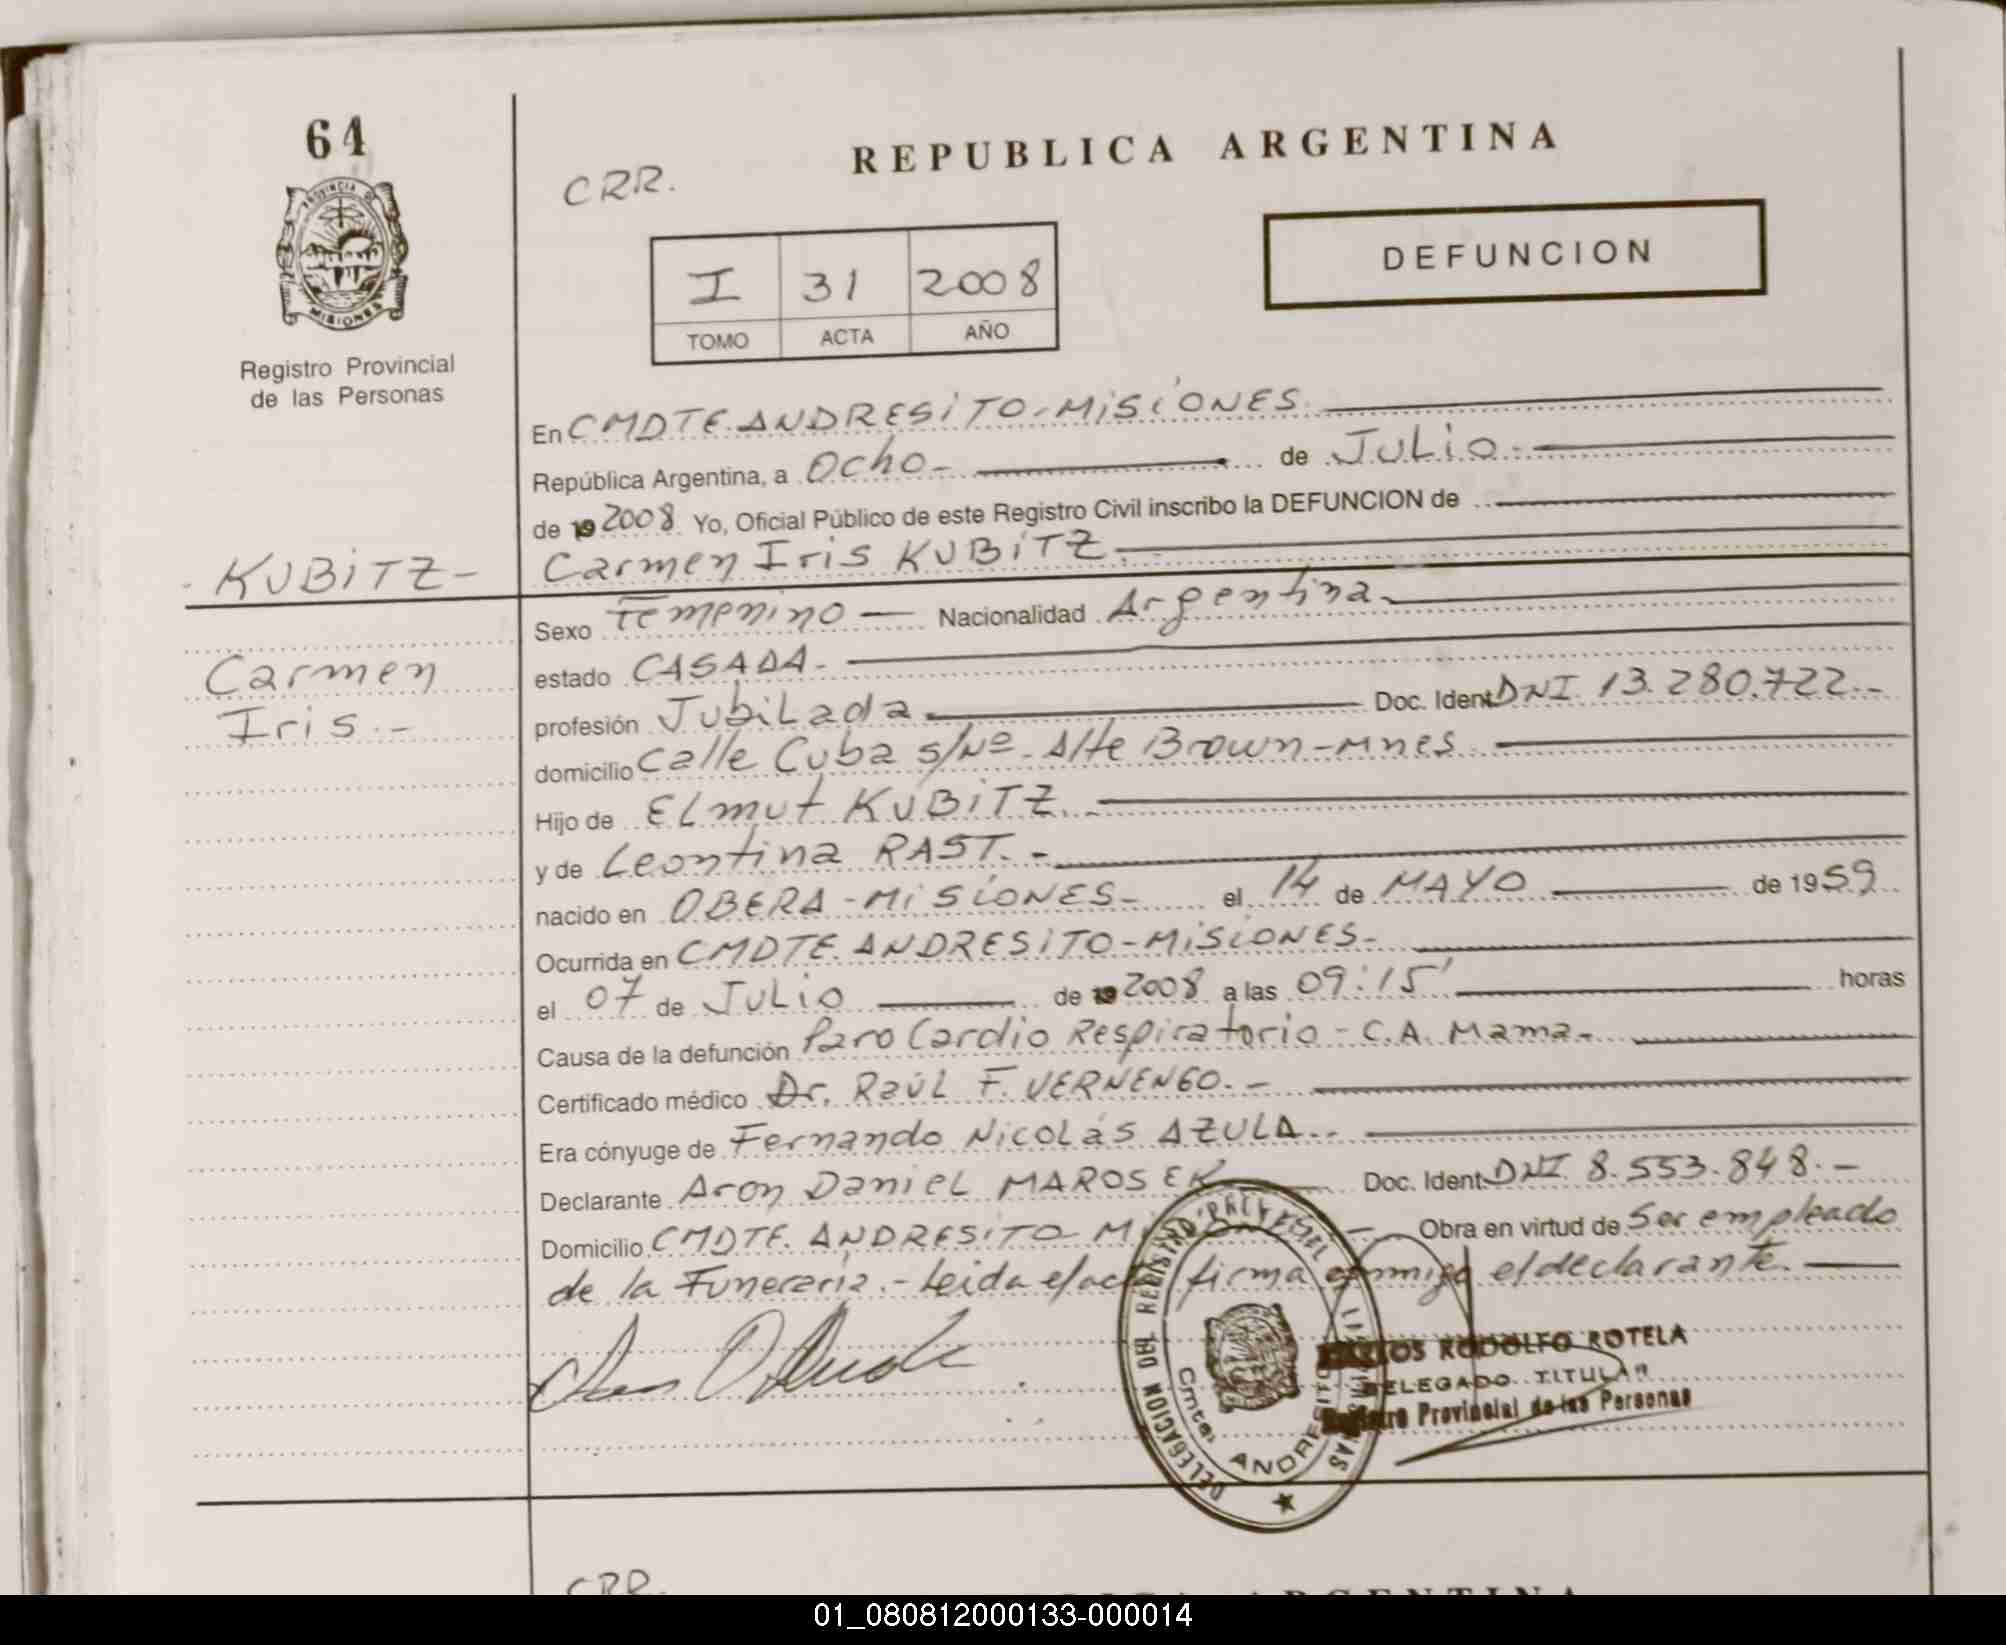 64
REPUBLICA ARGENTINA
CRR.
PROVINCIA DE
MISIONES
DEFUNCION
I 31 2008
TOMO ACTA AÑO
Registro Provincial
de las Personas
En CMDTE ANDRESITO-MISIONES.
República Argentina, a Ocho- de JULIO.-
de 19 2008 Yo, Oficial Público de este Registro Civil inscribo la DEFUNCION de
KUBITZ- Carmen Iris KUBITZ.-
Sexo Femenino - Nacionalidad Argentina.-
Carmen
Iris.-
estado CASADA.-
profesión JubiLada Doc. Ident DNI 13.280.722.-
domicilio Calle Cuba s/Nº- Alte Brown-Mnes.
Hijo de ELmut KUBITZ.-
y de Leontina RAST.-
nacido en OBERA-MISIONES- el 14 de MAYO de 1959
Ocurrida en CMDTE. ANDRESITO-MISIONES-
el 07 de JULIO de 19 2008 a las 09:15' horas
Causa de la defunción Paro Cardio Respiratorio - C.A. Mama-
Certificado médico Dr. RaúL F. VERNENGO.-
Era cónyuge de Fernando NicoLás AZULA.-
Declarante Aron DanieL MAROSEK Doc. Ident DNI 8.553.848.-
Domicilio CMDTE. ANDRESITO MISIONES - Obra en virtud de Ser empleado
de la Funeraria.- Leida el acta firma conmigo el declarante.
CARLOS RODOLFO ROTELA
DELEGADO TITULAR
Registro Provincial de las Personas
DELEGACION DEL REGISTRO
Cmte. ANDRESITO
CRR.
REPUBLICA ARGENTINA
01_080812000133-000014